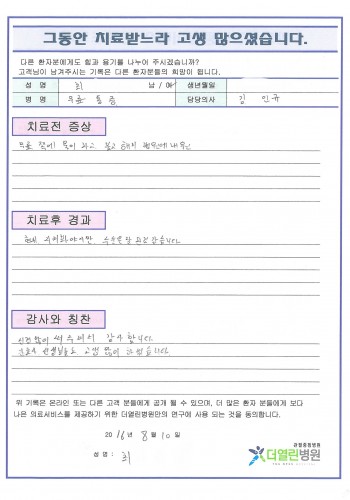 그동안 치료받느라 고생 많으셨습니다.
다른 환자분에게도 힘과 용기를 나누어 주시겠습니까?
고객님이 남겨주시는 기록은 다른 환자분들의 희망이 됩니다.
성 명 최 남 / 여 생년월일
병 명 무릎 통증 담당의사 김 민규
치료전 증상
무릎 쪽에 물이 차고
치료후 경과
감사와 칭찬
신경 많이 써 주셔서 감사합니다
간호사 선생님들도 고생 많이 하셨습니다
위 기록은 온라인 또는 다른 고객 분들에게 공개 될 수 있으며, 더 많은 환자 분들에게 보다
나은 의료서비스를 제공하기 위한 더열린병원만의 연구에 사용 되는 것을 동의합니다.
2016년 8월 10일
성 명 : 최
관절중점병원
더열린병원